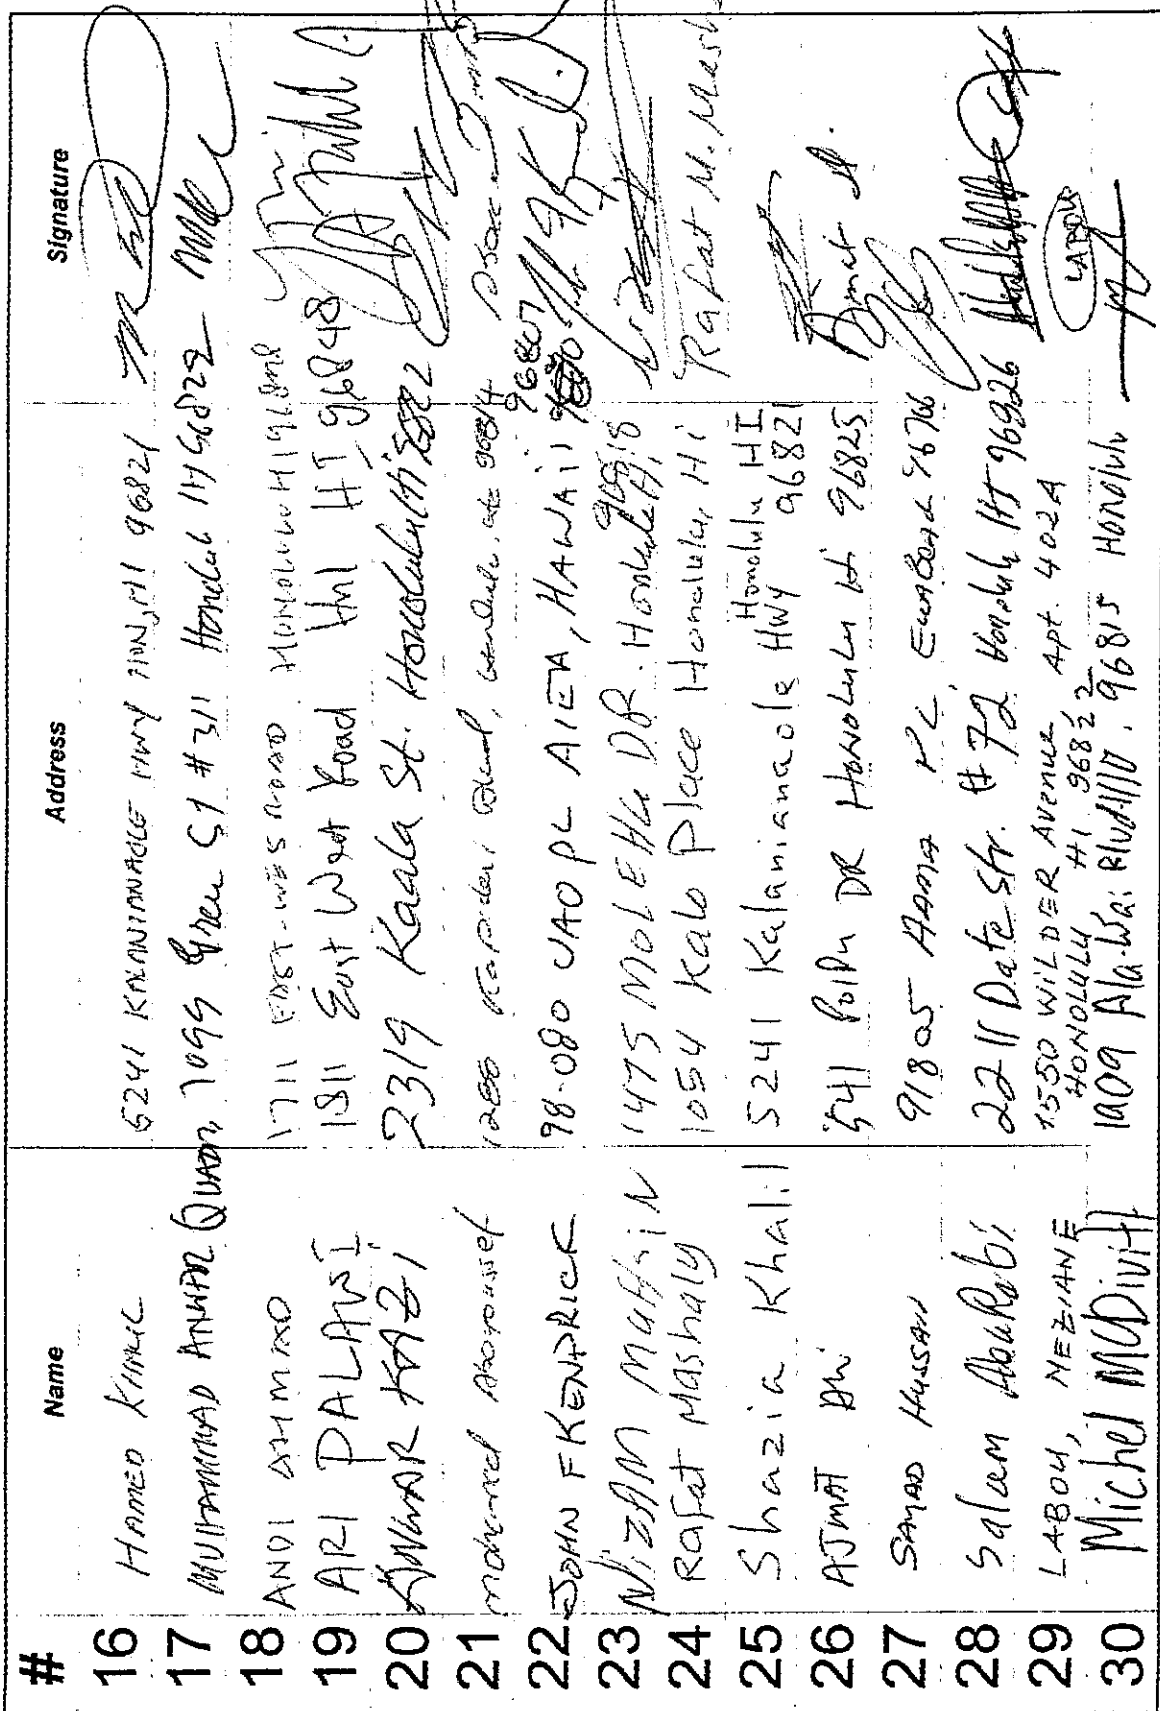 # Name Address Signature
16 HAMED 5241 KALANIANAOLE HWY HI 96821
17 MUHAMMAD ANWAR QUADRI 1099 Green St #311 Honolulu HI 96822
18 ANDI AHMAD 1711 EAST-WEST ROAD HONOLULU HI 96848
19 ARI PALAWI 1811 East West Road Hnl HI 96848
20 ANWAR KAZI 2319 Kaala St. Honolulu Hi 96822
21 mohamed Aboyoussef 96814
22 JOHN F KENDRICK 98-080 UAO PL AIEA, HAWAII 96807
23 NIZAM 1475 MOLEHU DR. Honolulu Hi, 96818
24 Rafat Mashaly 1054 Kalo Place Honolulu, Hi Rafat M. Mash
25 Shazia Khalil 5241 Kalanianaole HWY Honolulu HI 96821
26 AJMAT Ali 541 PoIPu DR HONOLULU Hi 96825
27 SAMAD HUSSAN 91805 AAMA PL Ewa Beach 96706
28 Salam AbuRabi 2211 Date Str. #72 Honolulu HI 96826
29 LABOU, MEZIANE 1550 WILDER AVENUE Apt. 402A LABOU
HONOLULU HI 96822
30 Michel McDivitt 1909 Ala-Wai Blvd 1110. 96815 Honolulu